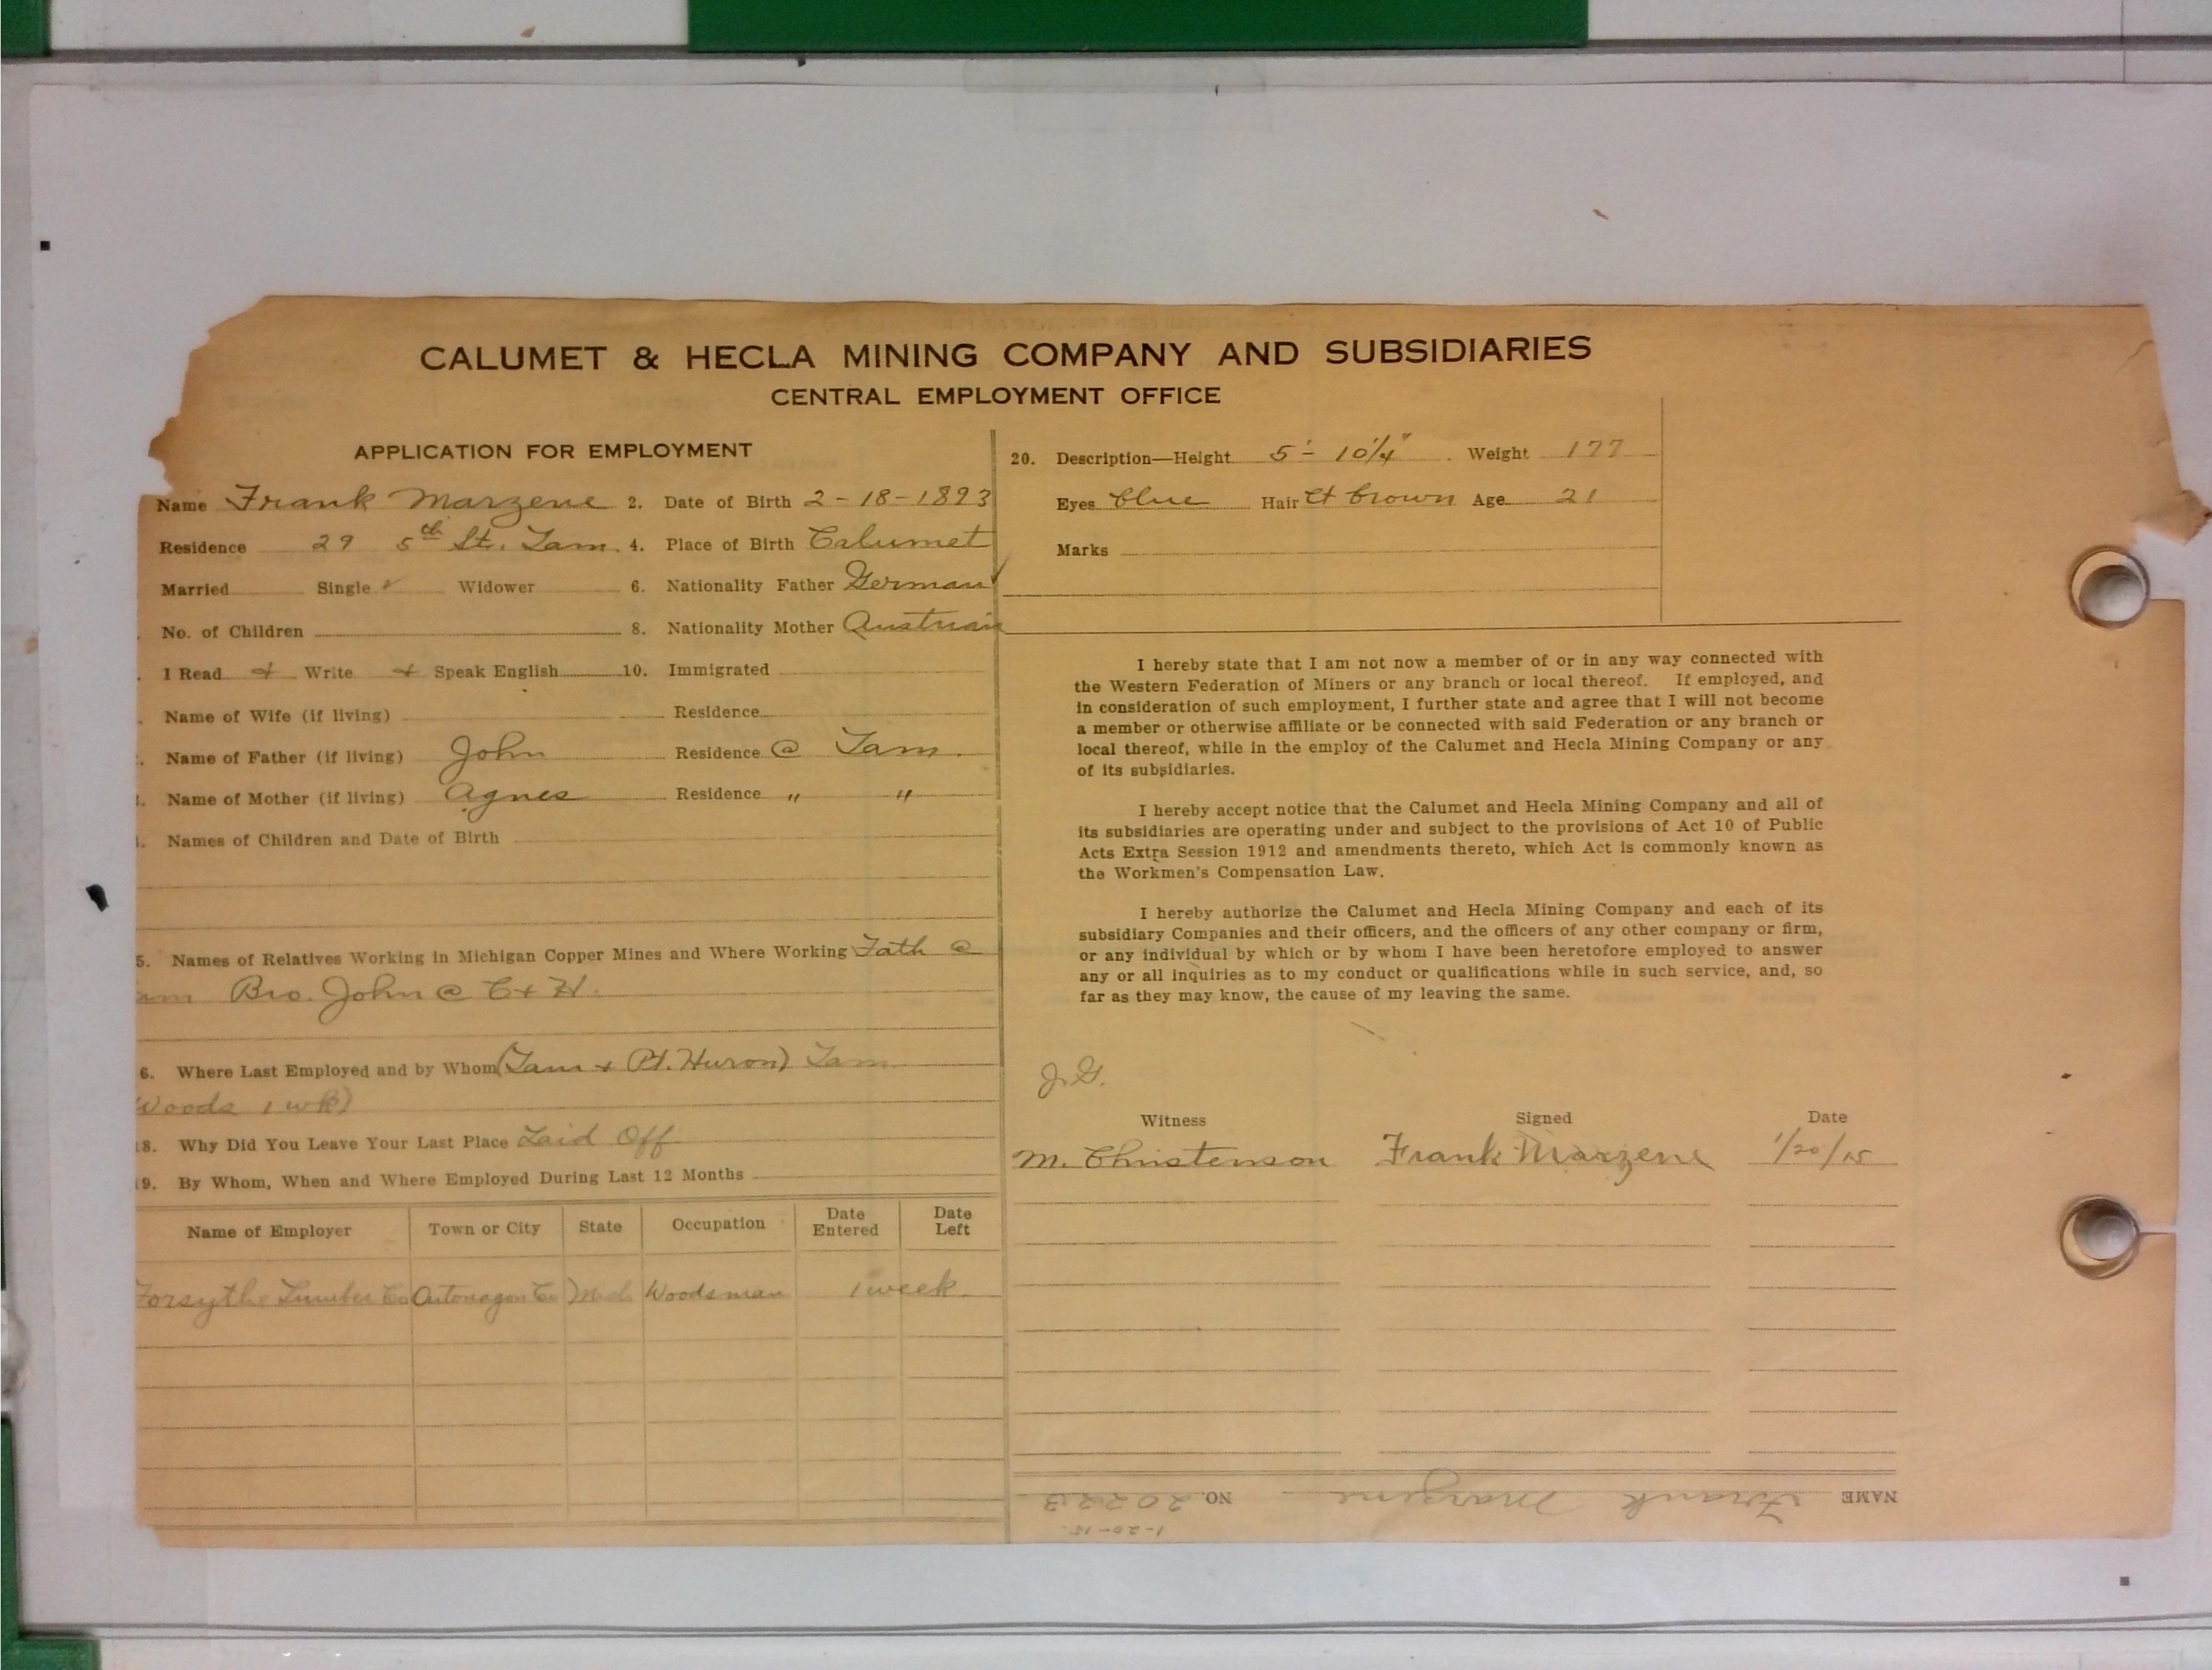 CALUMET & HECLA MINING COMPANY AND SUBSIDIARIES
CENTRAL EMPLOYMENT OFFICE
APPLICATION FOR EMPLOYMENT
Name Frank Marzene 2. Date of Birth 2-18-1893
Residence 29 5th St. Tam. 4. Place of Birth Calumet
Married Single ✓ Widower 6. Nationality Father German
No. of Children 8. Nationality Mother Austrian
I Read + Write + Speak English 10. Immigrated
Name of Wife (if living) Residence
Name of Father (if living) John Residence @ Tam.
Name of Mother (if living) Agnes Residence " "
Names of Children and Date of Birth
5. Names of Relatives Working in Michigan Copper Mines and Where Working Fath @
am Bro. John @ C + H.
6. Where Last Employed and by Whom (Tam + Pt. Huron) Tam
Woods 1 wk)
18. Why Did You Leave Your Last Place Laid Off
19. By Whom, When and Where Employed During Last 12 Months
Name of Employer Town or City State Occupation Date Entered Date Left
Forsythe Lumber Co Ontonagon Co Mich Woodsman 1 week
20. Description—Height 5'- 10 1/4" Weight 177
Eyes blue Hair Lt brown Age 21
Marks
I hereby state that I am not now a member of or in any way connected with
the Western Federation of Miners or any branch or local thereof. If employed, and
in consideration of such employment, I further state and agree that I will not become
a member or otherwise affiliate or be connected with said Federation or any branch or
local thereof, while in the employ of the Calumet and Hecla Mining Company or any
of its subsidiaries.
I hereby accept notice that the Calumet and Hecla Mining Company and all of
its subsidiaries are operating under and subject to the provisions of Act 10 of Public
Acts Extra Session 1912 and amendments thereto, which Act is commonly known as
the Workmen's Compensation Law.
I hereby authorize the Calumet and Hecla Mining Company and each of its
subsidiary Companies and their officers, and the officers of any other company or firm,
or any individual by which or by whom I have been heretofore employed to answer
any or all inquiries as to my conduct or qualifications while in such service, and, so
far as they may know, the cause of my leaving the same.
J.G.
Witness Signed Date
M. Christenson Frank Marzene 1/20/15
NAME Frank Marzene NO. 20223
1-20-15.